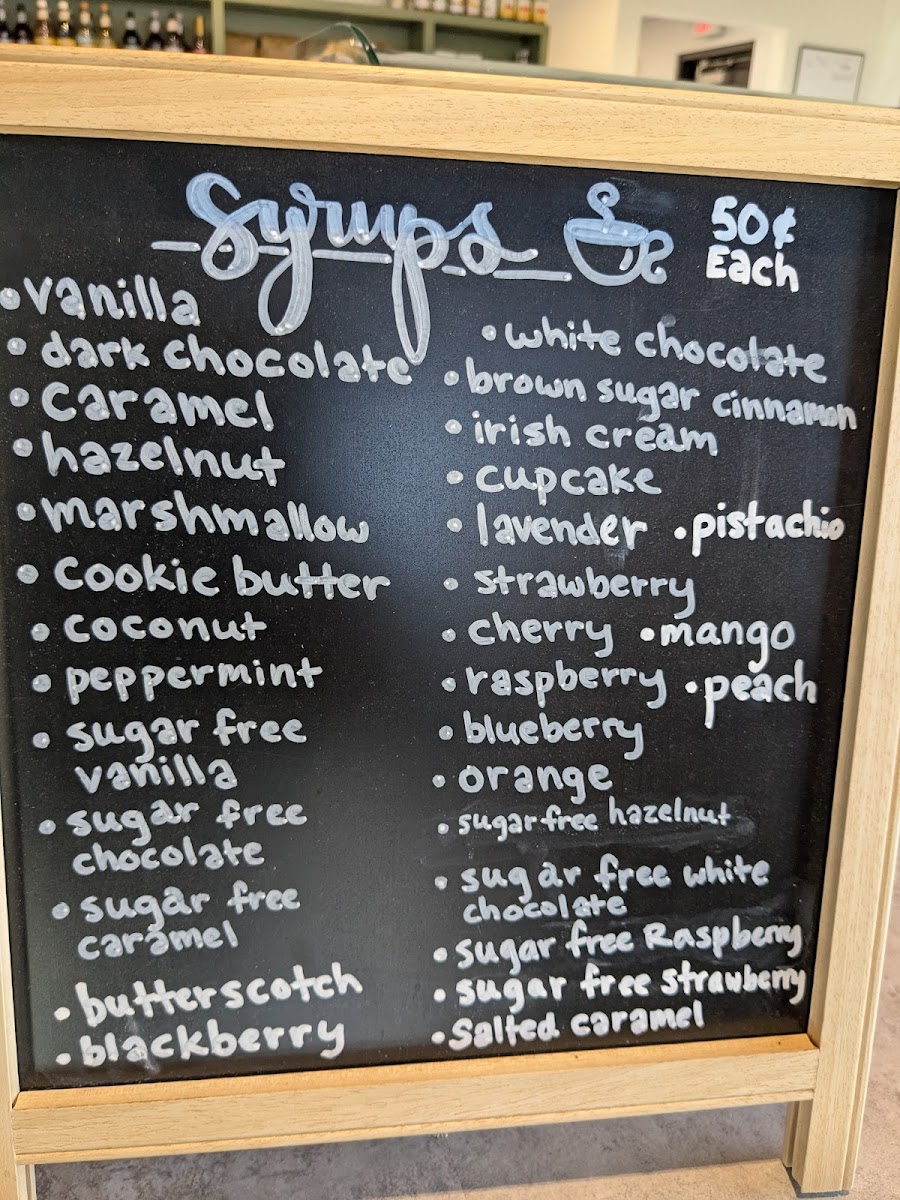 Syrups
50¢
Each
• vanilla
• dark chocolate
• caramel
• hazelnut
• marshmallow
• cookie butter
• coconut
• peppermint
• sugar free
vanilla
• sugar free
chocolate
• sugar free
caramel
• butterscotch
• blackberry
• white chocolate
• brown sugar cinnamon
• irish cream
• cupcake
• lavender • pistachio
• strawberry
• cherry • mango
• raspberry • peach
• blueberry
• orange
• sugar free hazelnut
• sugar free white
chocolate
• sugar free Raspberry
• sugar free strawberry
• Salted caramel